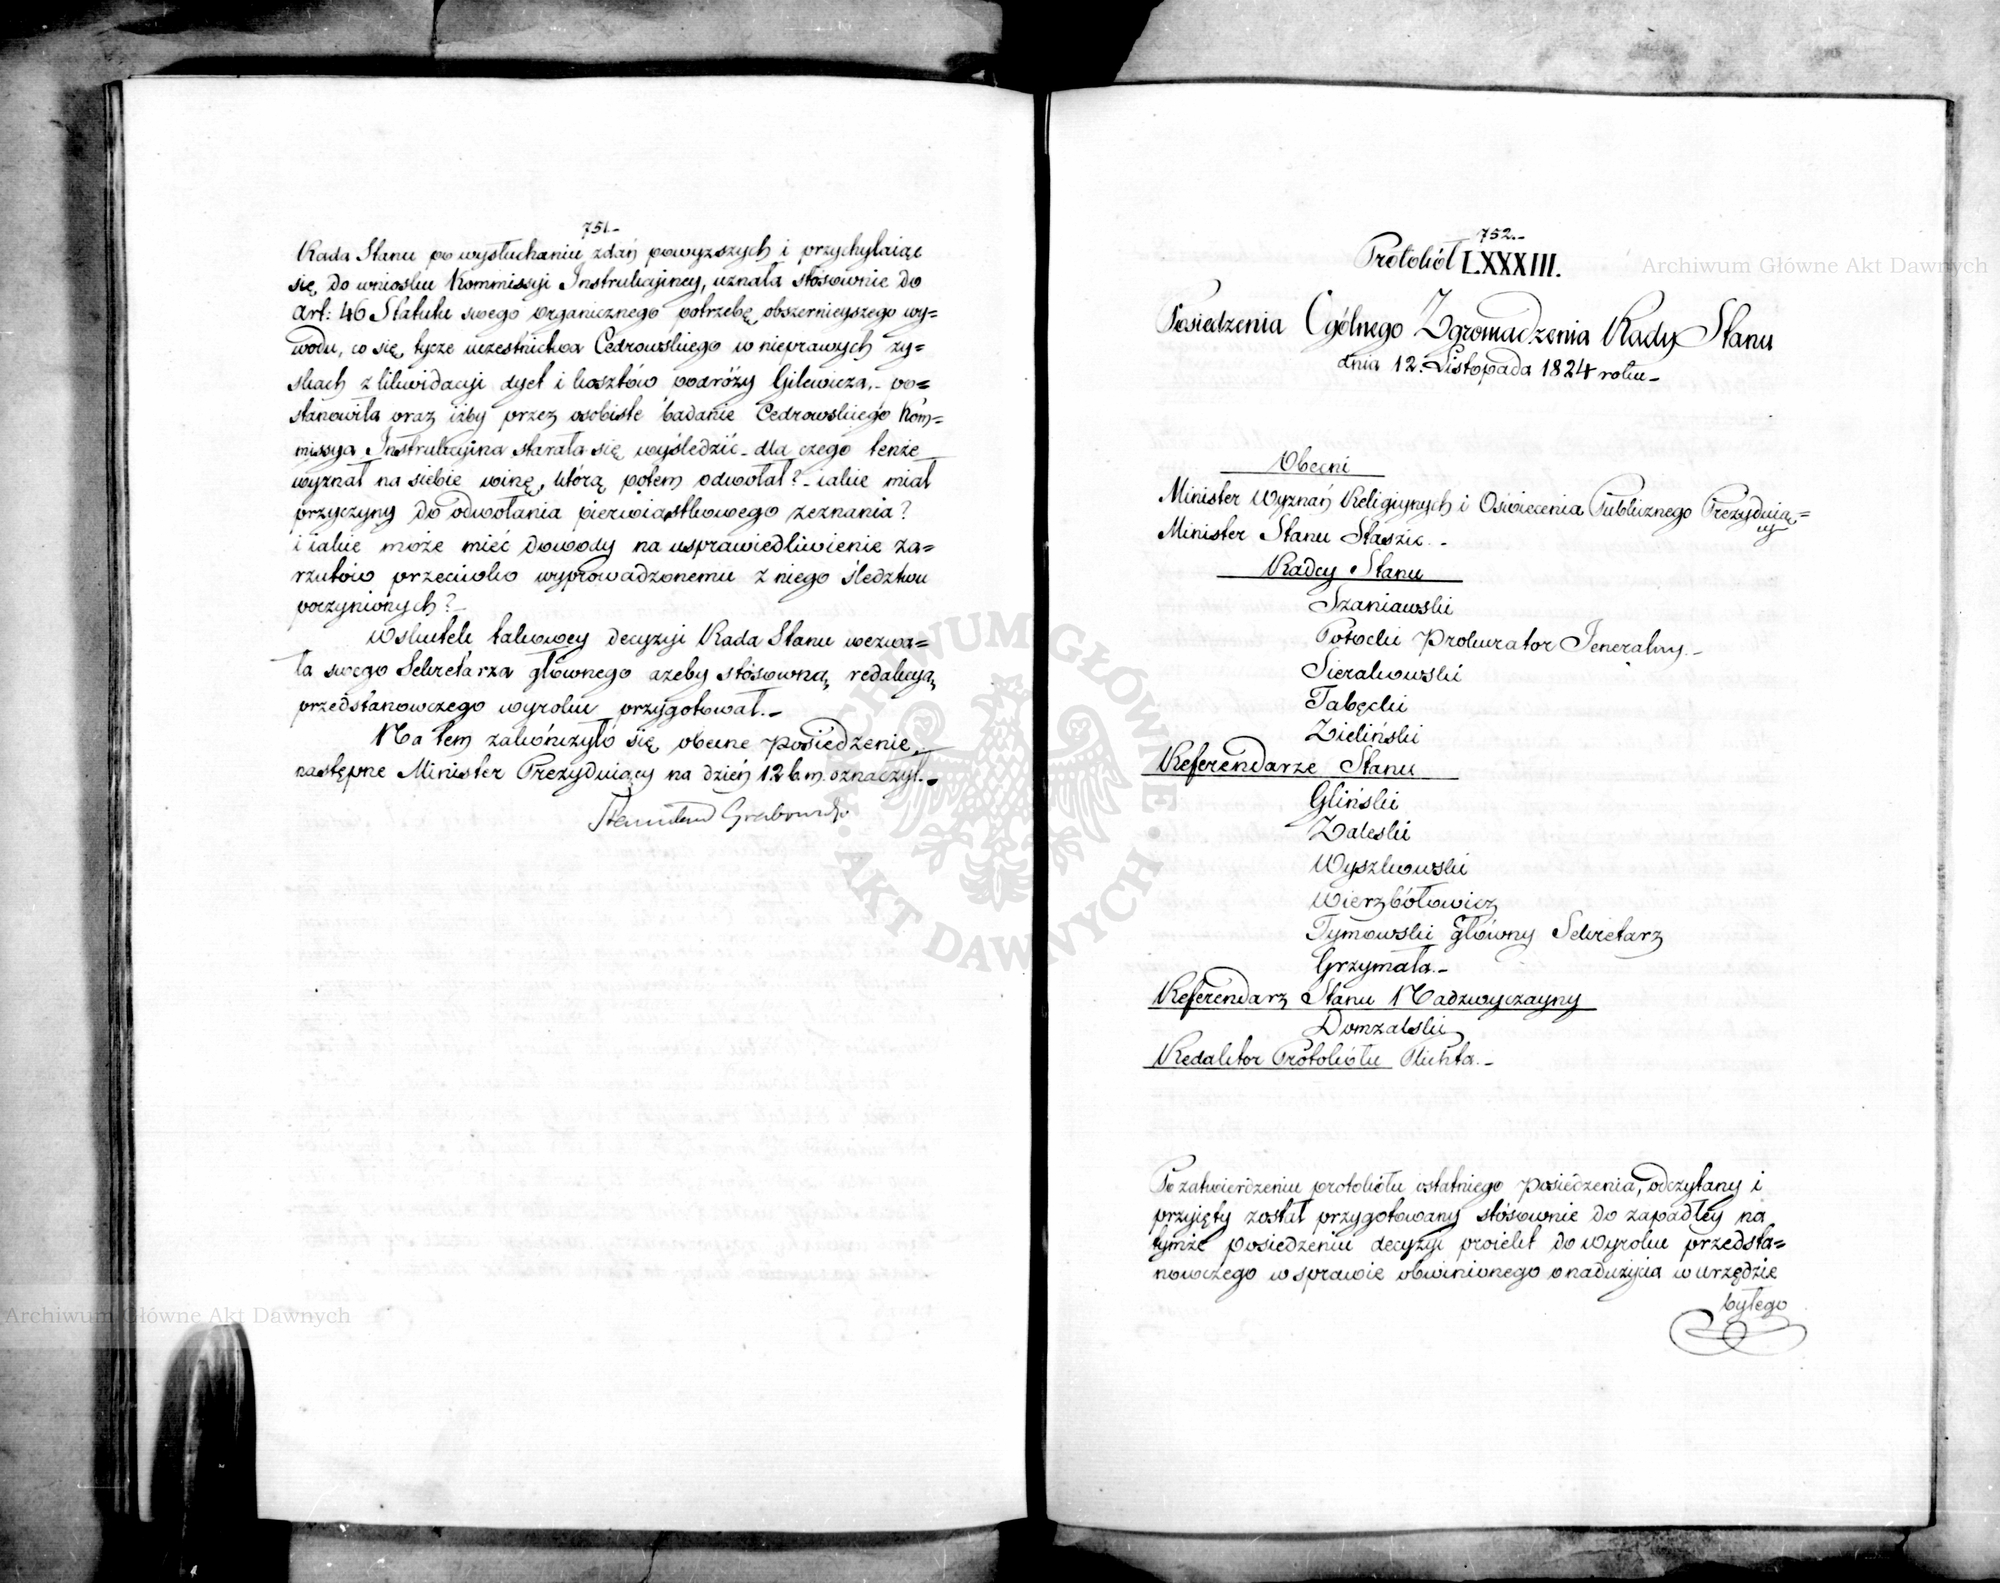 751.-
Rada Stanu po wysłuchaniu zdań powyższych i przychylaiąc
się do wniosku Kommissyi Instrukcyiney, uznała stósownie do
art: 46 Statutu swego organicznego potrzebę obszernieyszego wy=
wodu, co się tycze uczestnictwa Cedrowskiego w nieprawych zy=
skach z likwidacyi dyet i kosztów podróży Gilewicza,- po=
stanowiła oraz iżby przez osobiste badanie Cedrowskiego Kom=
missya Instrukcyina starała się wyśledzić - dla czego tenże
wyznał na siebie winę, którą potem odwołał? - iakie miał
przyczyny do odwołania pierwiastkowego zeznania?
i iakie może mieć dowody na usprawiedliwienie za=
rzutów przeciwko wyprowadzonemu z niego śledztwu
poczynionych? -
Wskutek takowey decyzyi Rada Stanu wezwa=
ła swego Sekretarza głównego ażeby stósowną redakcyą
przedstanowczego wyroku przygotował.-
Na tem zakończyło się obecne posiedzenie,
następne Minister Prezyduiący na dzień 12 b.m. oznaczył.-
Stanisław Grabowski
752.-
Protokół LXXXIII.
Posiedzenia Ogólnego Zgromadzenia Rady Stanu
dnia 12. Listopada 1824 roku-
Obecni
Minister Wyznań Religiynych i Oświecenia Publicznego Prezyduią=
cy
Minister Stanu Staszic.-
Radcy Stanu
Szaniawski
Potocki Prokurator Jeneralny.-
Sierakowski
Tabęcki
Zieliński
Referendarze Stanu
Gliński
Zaleski
Wyszkowski
Wierzbółowicz
Tymowski główny Sekretarz
Grzymała.-
Referendarz Stanu Nadzwyczayny
Domżalski
Redaktor Protokółu Plichta.-
Po zatwierdzeniu protokółu ostatniego posiedzenia, odczytany i
przyięty został przygotowany stósownie do zapadłey na
tymże posiedzeniu decyzyi proiekt do wyroku przedsta=
nowczego w sprawie obwinionego o nadużycia w urzędzie
byłego
Archiwum Główne Akt Dawnych
Archiwum Główne Akt Dawnych
ARCHIWUM GŁÓWNE
AKT DAWNYCH